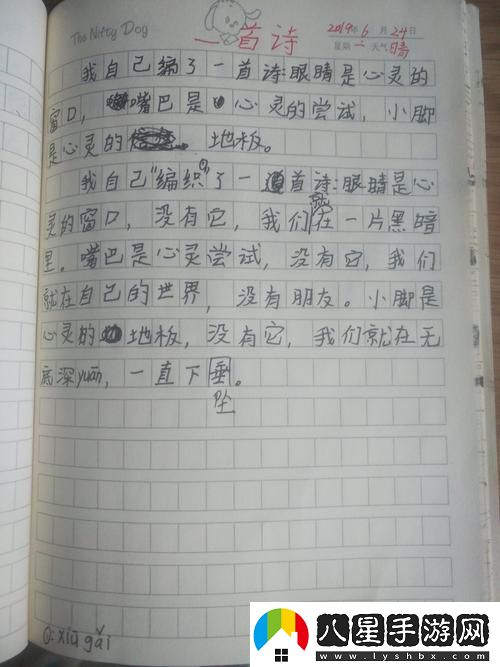 The Nifty Dog
一首诗
2019年6月24日
星期二 天气晴
我自己编了一首诗:眼睛是心灵的
窗口,嘴巴是心灵的尝试,小脚
是心灵的 地板。
①
我自己"编织"了一首诗:眼睛是心
灵的窗口,没有它,我们就在一片黑暗
里。嘴巴是心灵尝试,没有它,我们
就在自己的世界,没有朋友。小脚是
心灵的地板,没有它,我们就在无
底深yuān,一直下垂。
坠
①:xiū gǎi
八星手游网
www.lyshbx.com